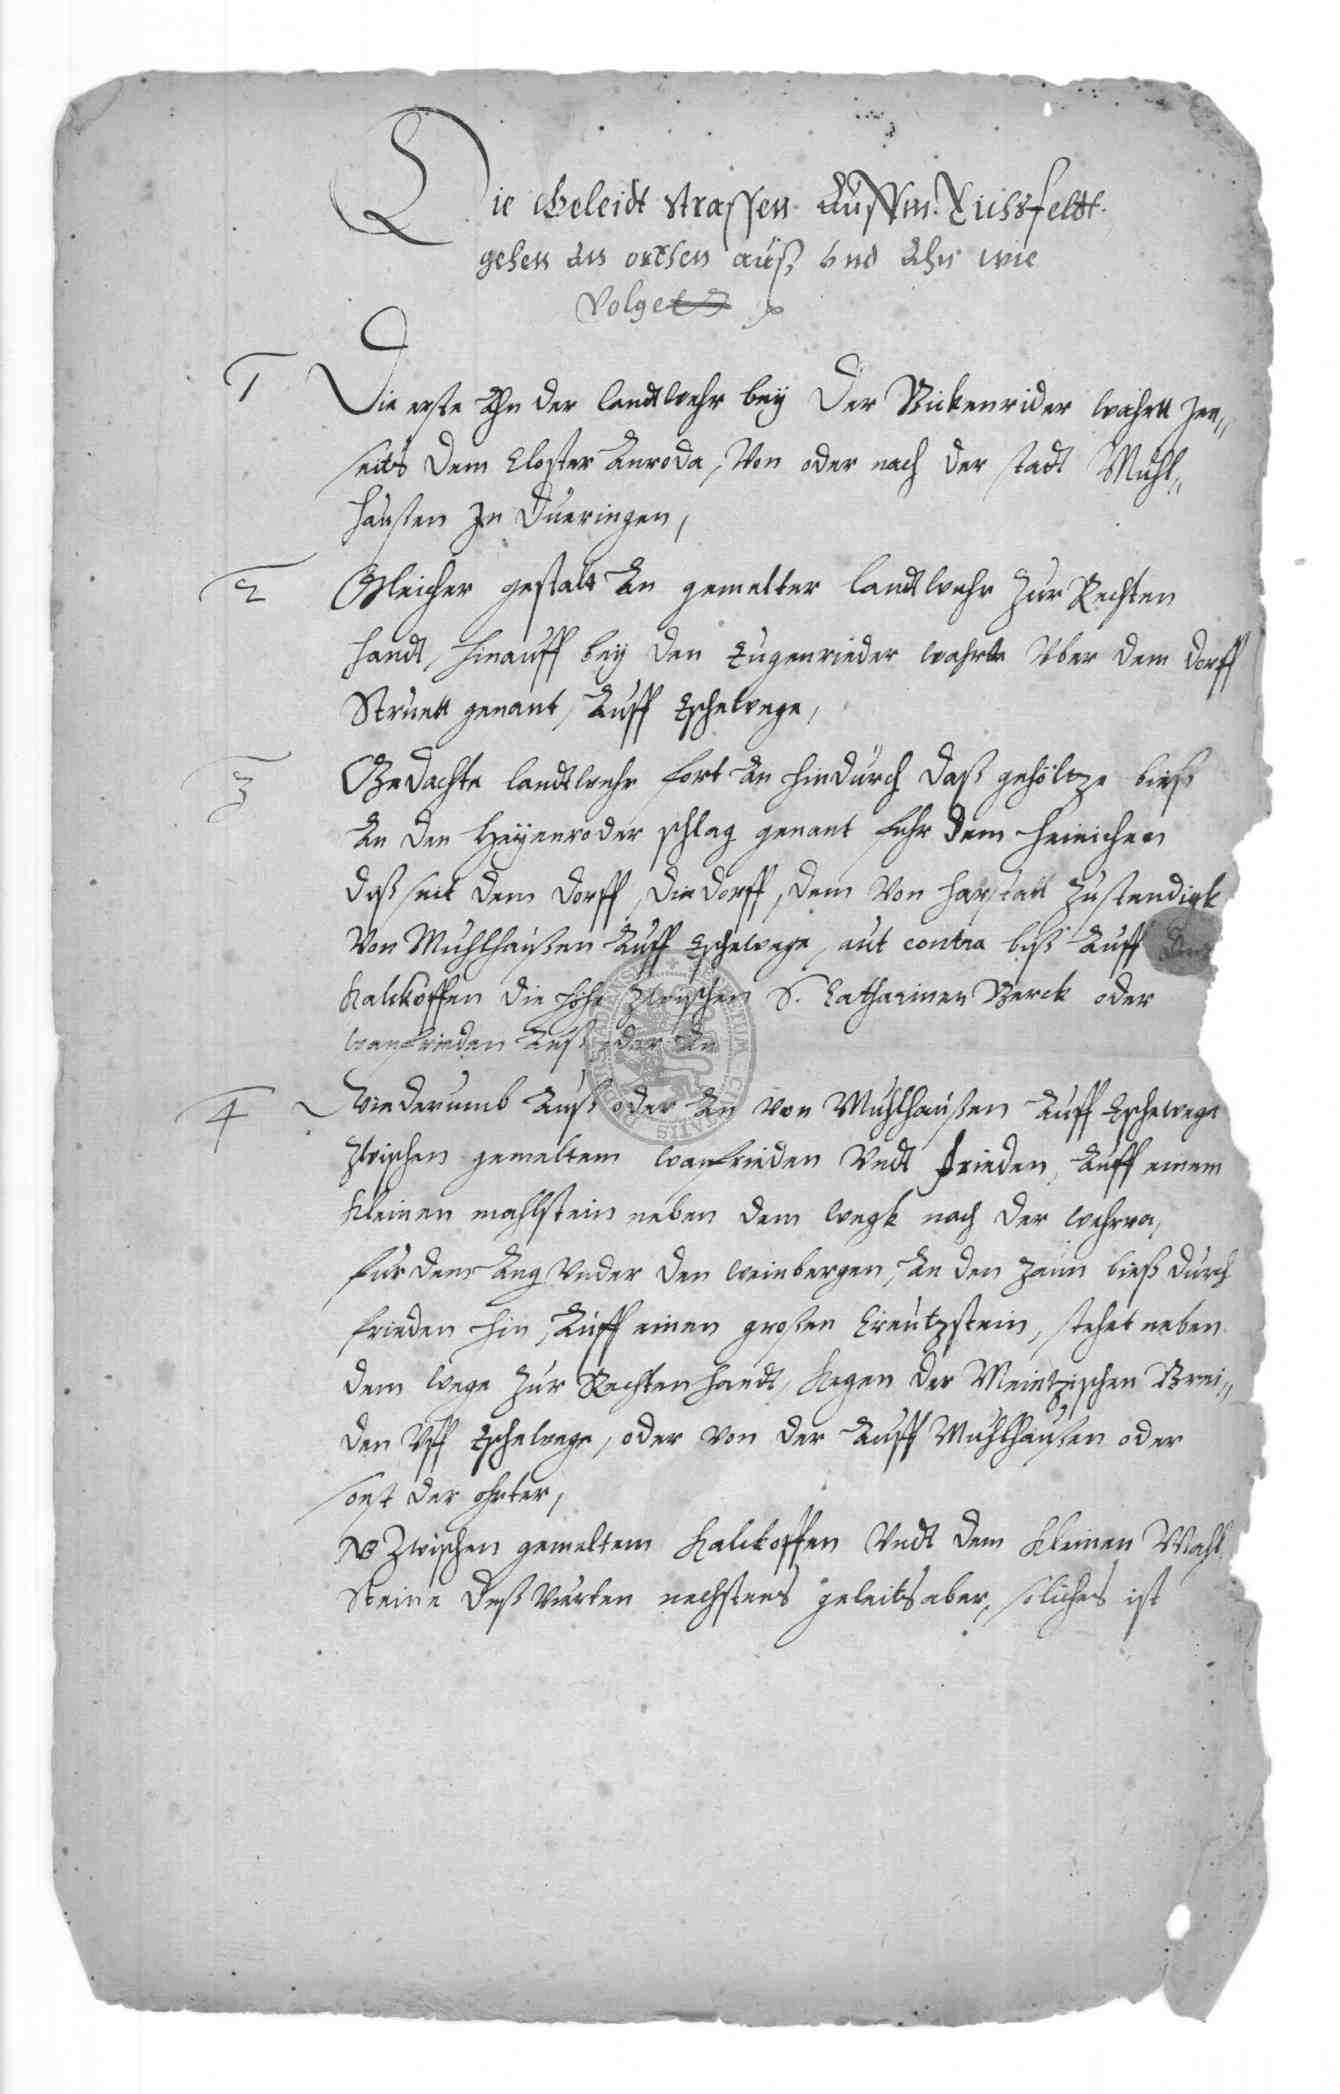 Die Geleidt Strassen Auffm Eichsfeldt
gehen an orthen auß und Ahn wie
Volget
1 Die erste Ahn der landtwehr bey der Bickenrider wahrtt Jen„
seits dem Closter Anroda, Von oder nach der stadt Muhl„
haußen In Dueringen,
2 Gleicher gestalt An gemelter landtwehr zur Rechten
handt, hinauff bey den Eugenrieder wahrtt Uber dem dorff
Struett genant, Auff Eschewege,
3 Gedachte landtwehr fort An hindurch daß gehöltze bieß
An den Heyenroder schlag genant fuhr dem heinichen
dißseit dem dorff, Diedorff, dem Von harstall zustendigk
Von Muhlhaußen Auff Eschewege, aut contra biß Auff den
Kalckoffen die höhe zwischen S. Catharinen Berck oder
wanfrieden Auß oder An
4 Wiederumb Auß oder An von Muhlhaußen Auff Eschewege
zwischen gemeltem wanfrieden Undt Frieden, Auff einem
kleinen mahlstein neben dem wegk nach der wehrra,
fur dem Ang Under den weinbergen, An den zaun bieß durch
frieden hin, Auff einen großen Creutzstein, stehet neben
dem wege zur Rechten handt, kegen der Meintzischen Brei„
den Uff Eschewege, oder von der Auff Muhlhaußen oder
sonst der ohrter,
NB Zwischen gemeltem Kalckoffen Undt dem kleinen Mahl
Steine deß Vierten nechstens geleits aber, sliches ist